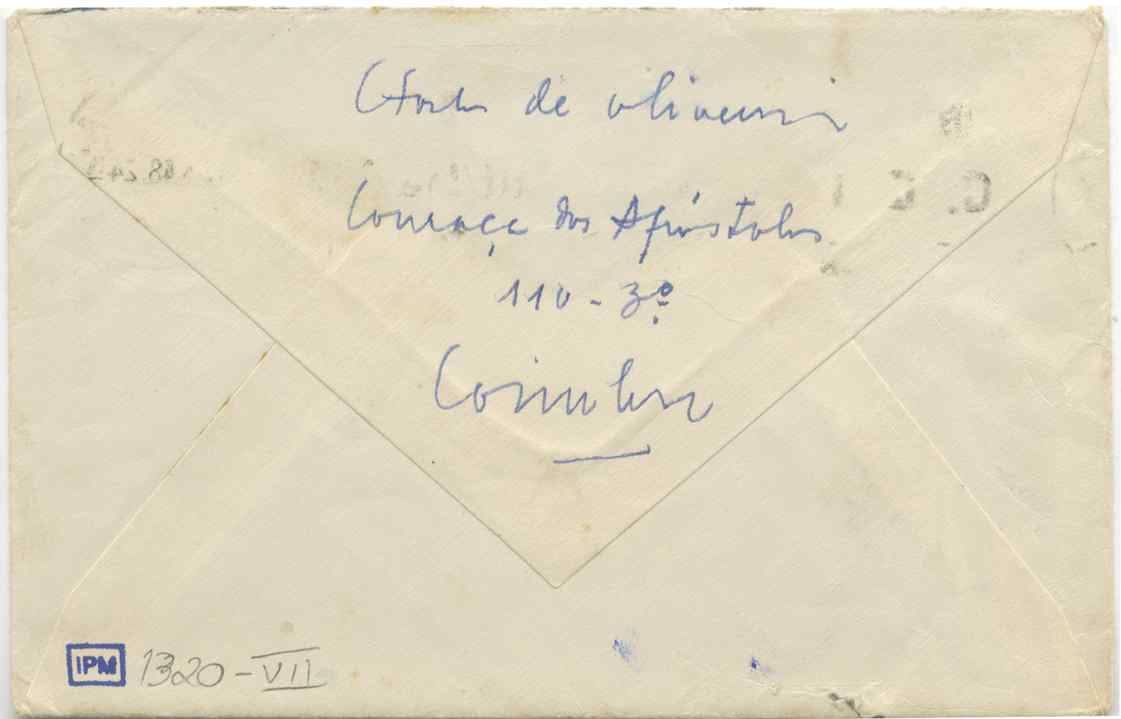 de oliveira
Couraça dos Apóstolos
110 - 3º
Coimbra
IPM 1320-VII